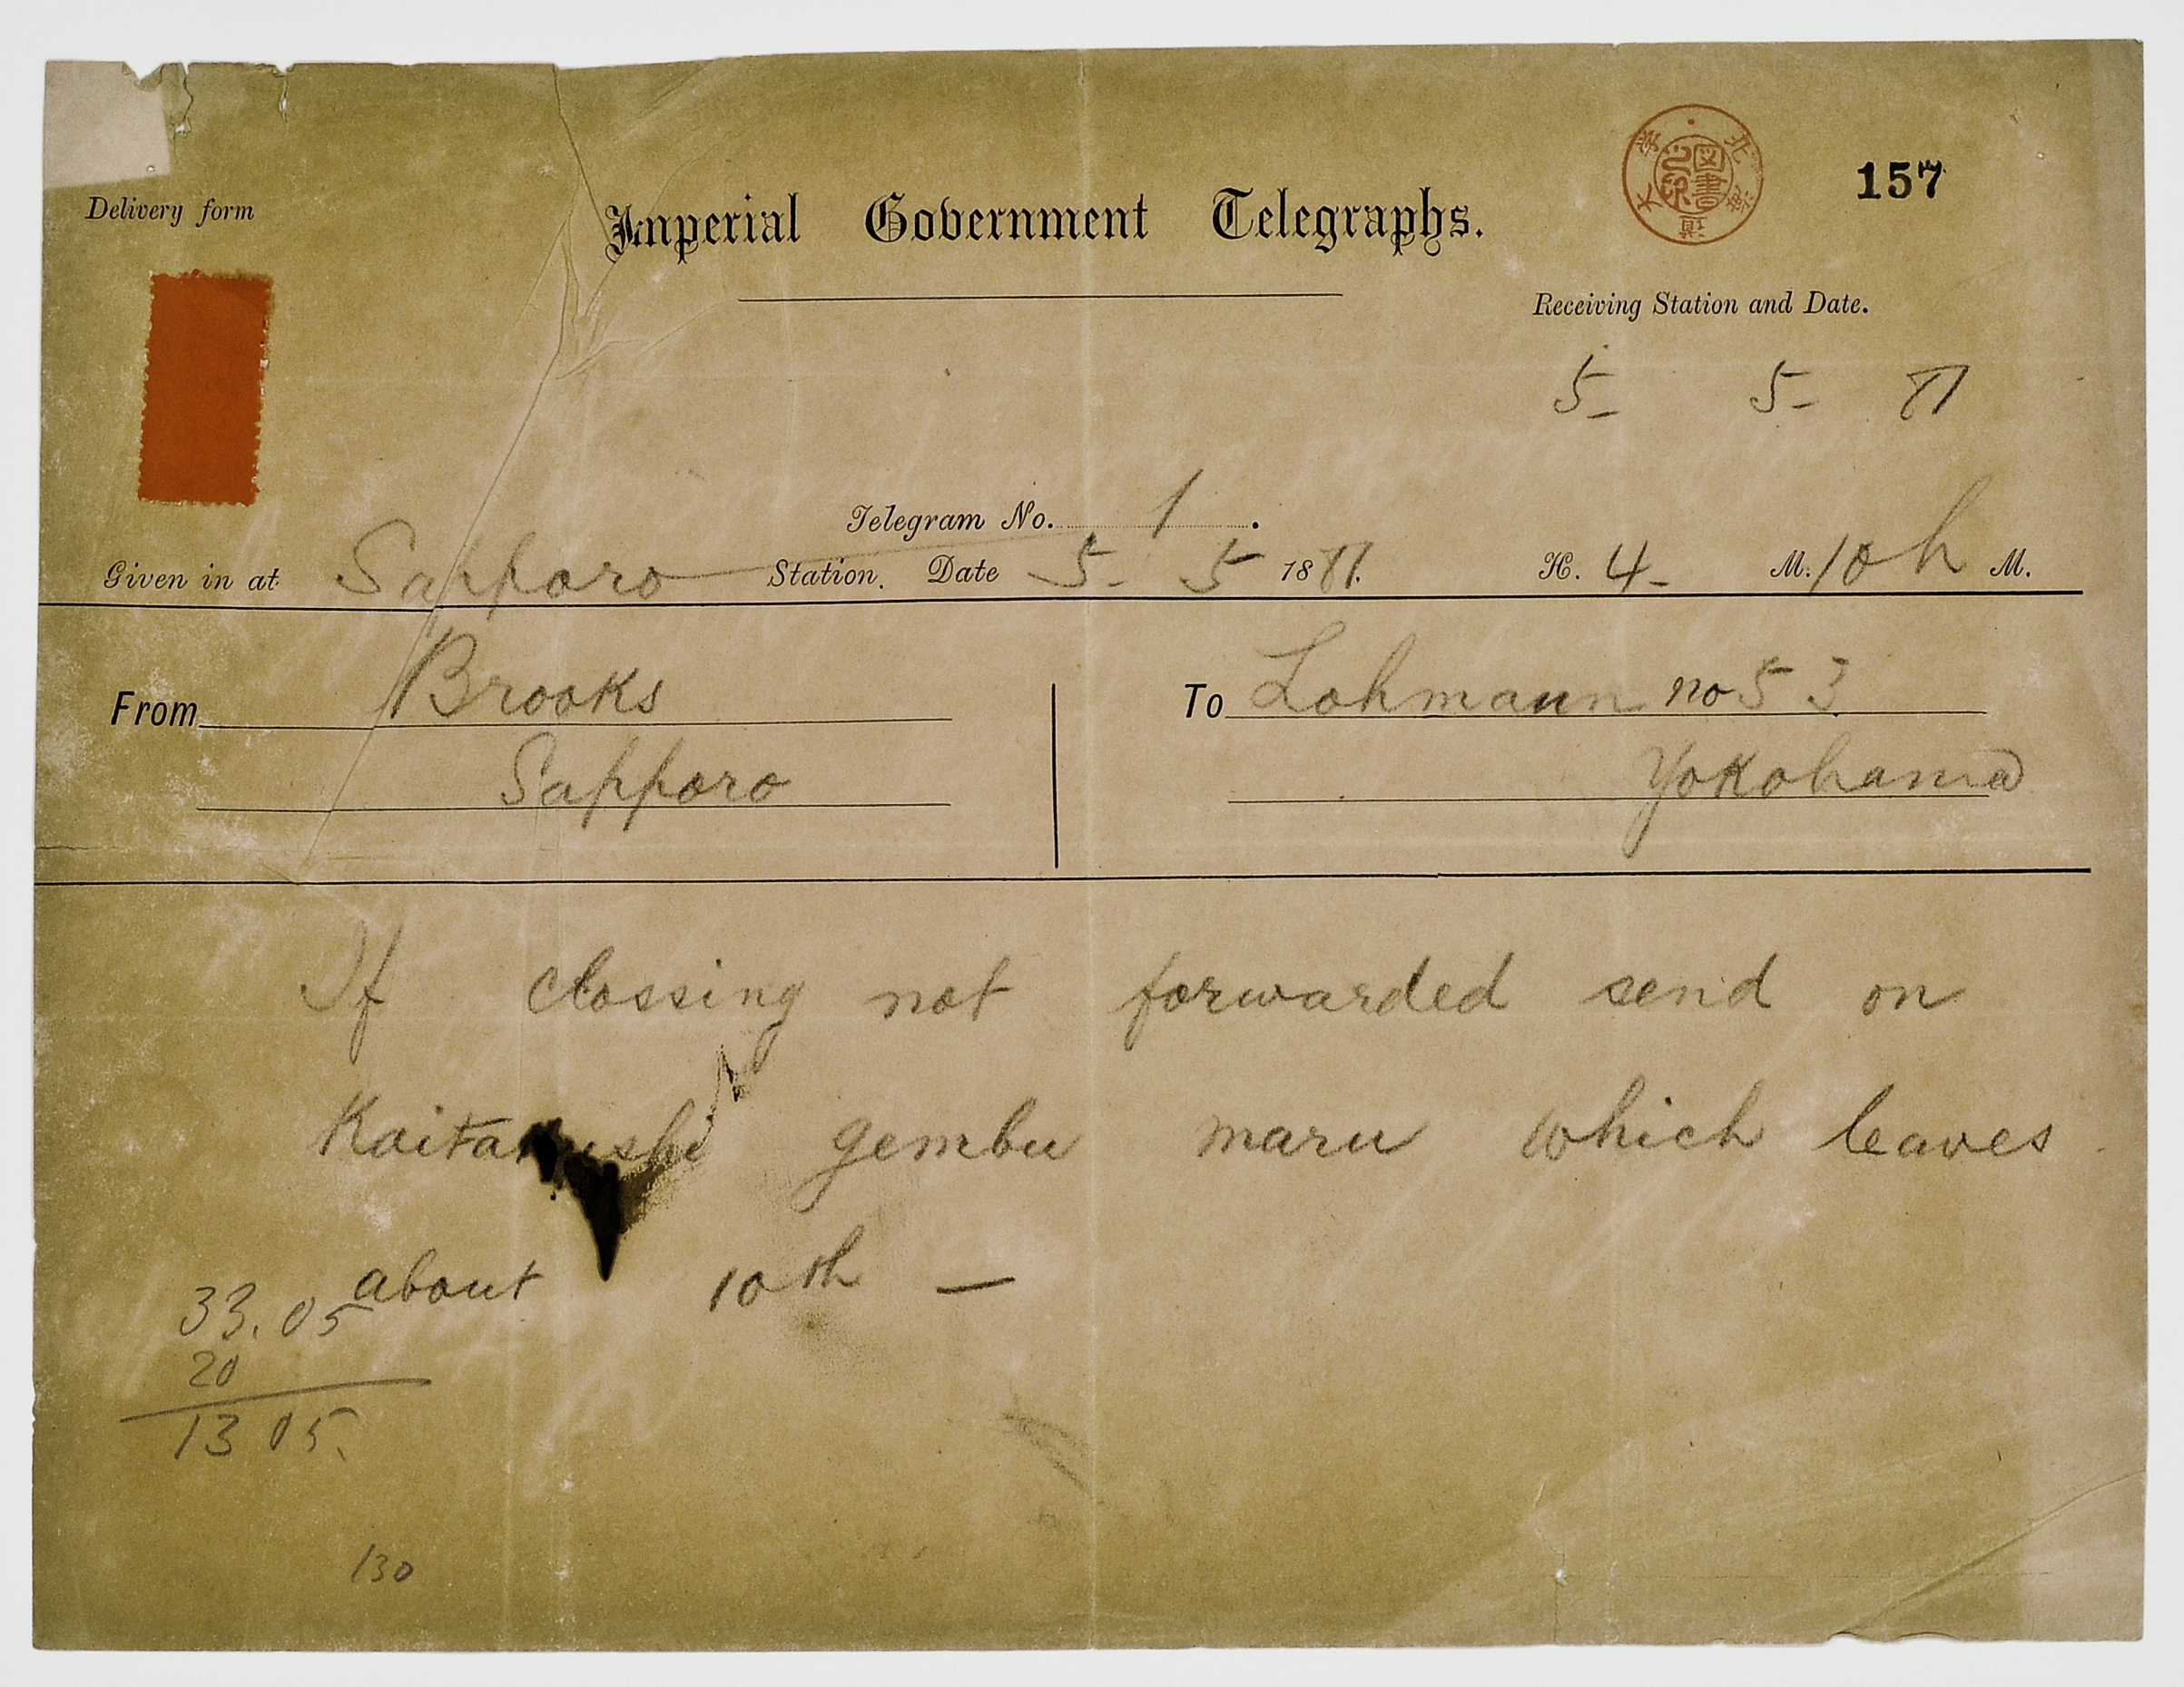 157
Delivery form
Imperial Government Telegraphs.
北海道大学
図書之印
Receiving Station and Date.
5- 5- 
Telegram No. 1.
Given in at Sapporo Station. Date 5- 5 18 H. 4- M. 10 h M.
From Brooks
Sapporo
To Lohmann no 53
Yokohama
If clossing not forwarded send on
gembu maru which leaves
about 10th —
33.05
20
13 05.
130